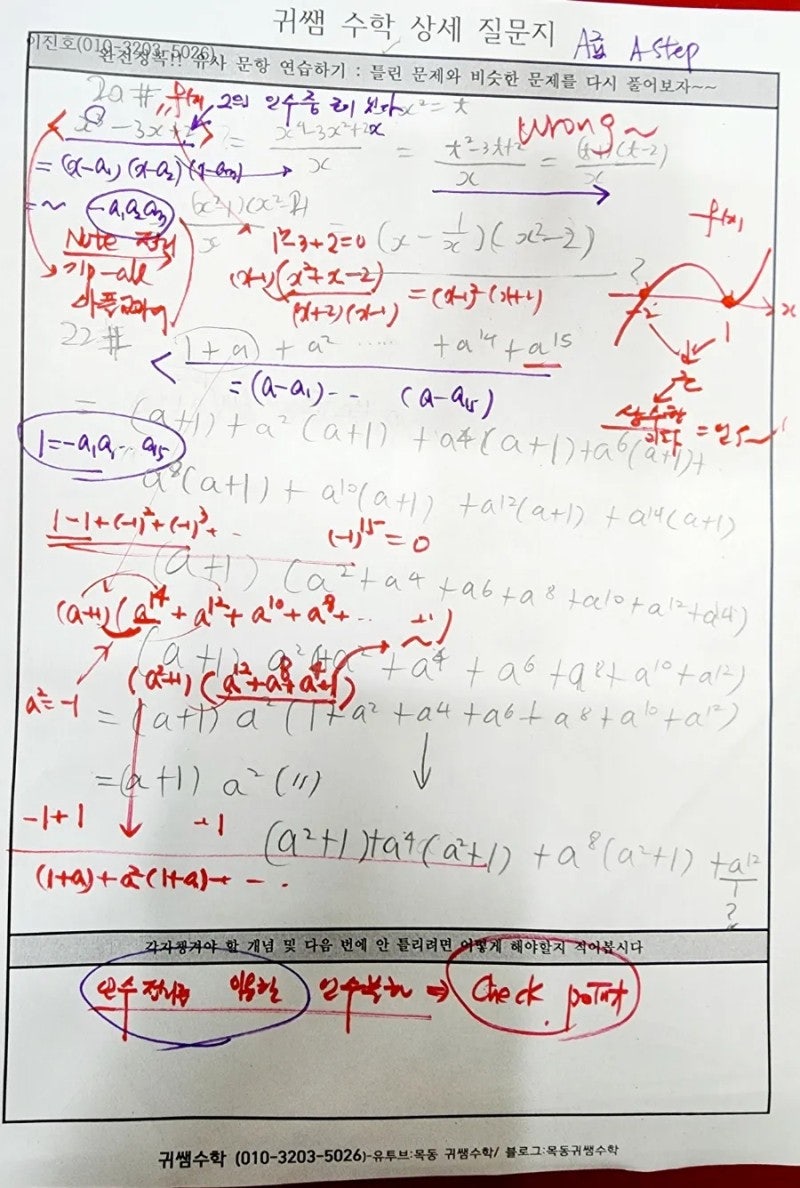 귀쌤 수학 상세 질문지
A급 A-step
이진호(010-3203-5026)
완전정복!! 유사 문항 연습하기 : 틀린 문제와 비슷한 문제를 다시 풀어보자~~
20# f(x) 2의 인수중 x² = t
x³ - 3x + 2 = (x⁴ - 3x² + 2x)/x = (t² - 3t + 2)/x = (t-1)(t-2)/x
wrong~
= (x-a₁)(x-a₂)(x-a₃)
= ~ -a₁a₂a₃
(x - 1/x)(x² - 2)
f(x)
Note 정리
1-3+2=0
(x-1)(x²+x-2)
(x+2)(x-1) = (x-1)²(x+2)
-2 1 x
22#
1 + a + a² ...... + a¹⁴ + a¹⁵
= (a-a₁) - - (a-a₁₅)
상수항
= (a+1) + a²(a+1) + a⁴(a+1) + a⁶(a+1) +
1 = -a₁a₂ ... a₁₅
a⁸(a+1) + a¹⁰(a+1) + a¹²(a+1) + a¹⁴(a+1)
1-1+(-1)²+(-1)³+ .. (-1)¹⁵ = 0
(a+1) (a² + a⁴ + a⁶ + a⁸ + a¹⁰ + a¹² + a¹⁴)
(a+1)(a¹⁴ + a¹² + a¹⁰ + a⁸ + .. +1)
+ a⁴ + a⁶ + a⁸ + a¹⁰ + a¹²)
(a²+1)(a¹² + a⁸ + a⁴ + 1)
a² = -1
= (a+1) a² (1 + a² + a⁴ + a⁶ + a⁸ + a¹⁰ + a¹²)
= (a+1) a² (〃)
-1+1 +1
(a²+1) + a⁴(a²+1) + a⁸(a²+1) + a¹²
(1+a) + a²(1+a) + - .
?
각자챙겨야 할 개념 및 다음 번에 안 틀리려면 어떻게 해야할지 적어봅시다
인수정리를 이용한 인수분해 ⇒ Check point
귀쌤수학 (010-3203-5026)-유투브:목동 귀쌤수학/ 블로그:목동귀쌤수학